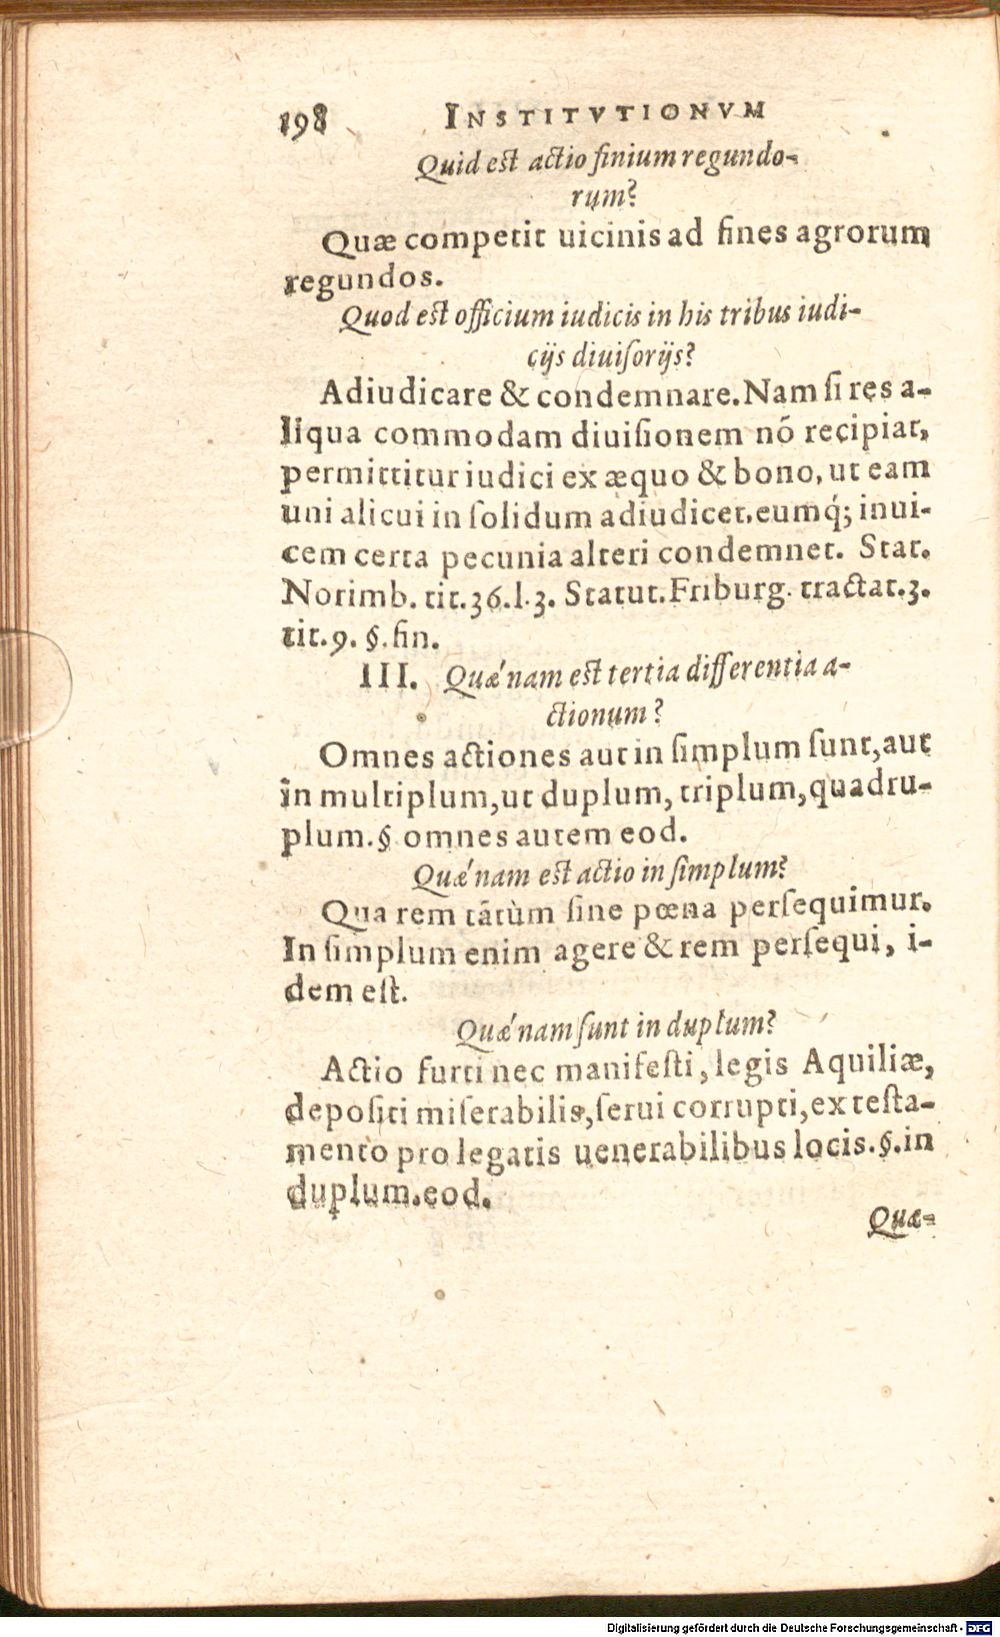 198 INSTITVTIONVM
Quid est actio finium regundo-
rum?
Quæ competit uicinis ad fines agrorum
regundos.
Quod est officium iudicis in his tribus iudi-
cijs diuiſorijs?
Adiudicare & condemnare. Nam ſi res a-
liqua commodam diuiſionem nō recipiat,
permittitur iudici ex æquo & bono, ut eam
uni alicui in ſolidum adiudicet. eumq́; inui-
cem certa pecunia alteri condemnet. Stat.
Norimb. tit. 36. l. 3. Statut. Friburg. tractat. 3.
tit. 9. §. fin.
III. Quæ'nam est tertia differentia a-
ctionum?
Omnes actiones aut in ſimplum ſunt, aut
in multiplum, ut duplum, triplum, quadru-
plum. § omnes autem eod.
Quæ'nam est actio in ſimplum?
Qua rem tātùm ſine pœna perſequimur.
In ſimplum enim agere & rem perſequi, i-
dem eſt.
Quæ'nam ſunt in duplum?
Actio furti nec manifeſti, legis Aquiliæ,
depoſiti miſerabilis, ſerui corrupti, ex teſta-
mento pro legatis uenerabilibus locis. §. in
duplum. eod.
Quæ-
Digitalisierung gefördert durch die Deutsche Forschungsgemeinschaft - DFG